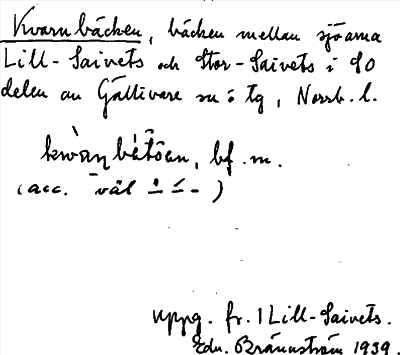 Kvarnbäcken, bäcken mellan sjöarna
Lill-Saivets och Stor-Saivets i SO
delen av Gällivare sn o tg, Norrb. l.
bf. m.
(acc. väl)
uppg. fr. 1 Lill-Saivets.
Edv. Brännström 1939.